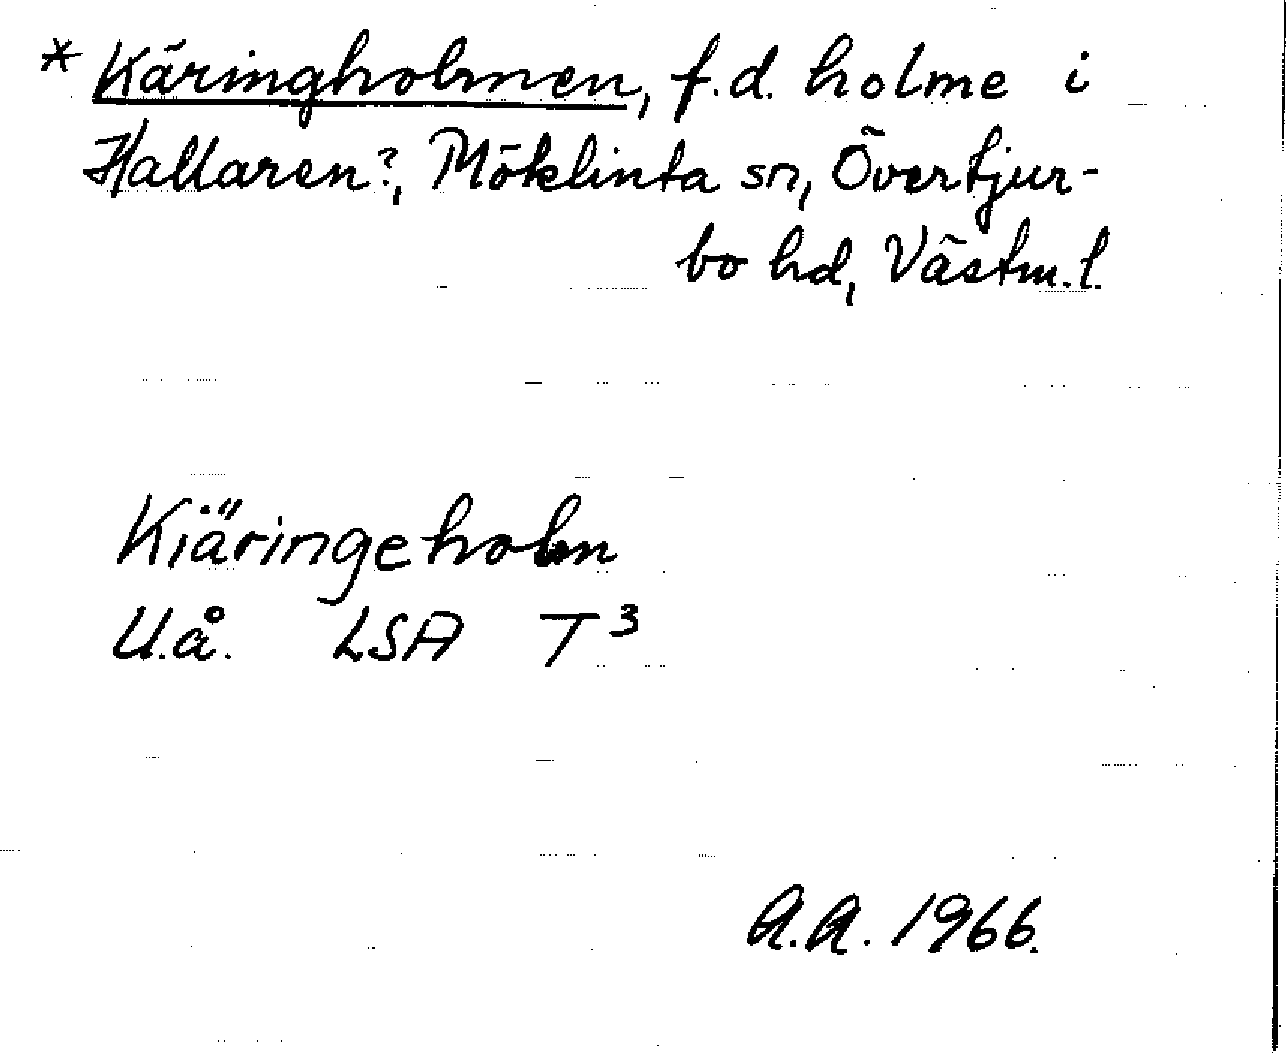 * Käringholmen, f.d. holme i
Hallaren?, Möklinta sn, Övertjur-
bo hd, Västm. l.
Kiäringeholm
U.å. LSA T3
A.A. 1966.